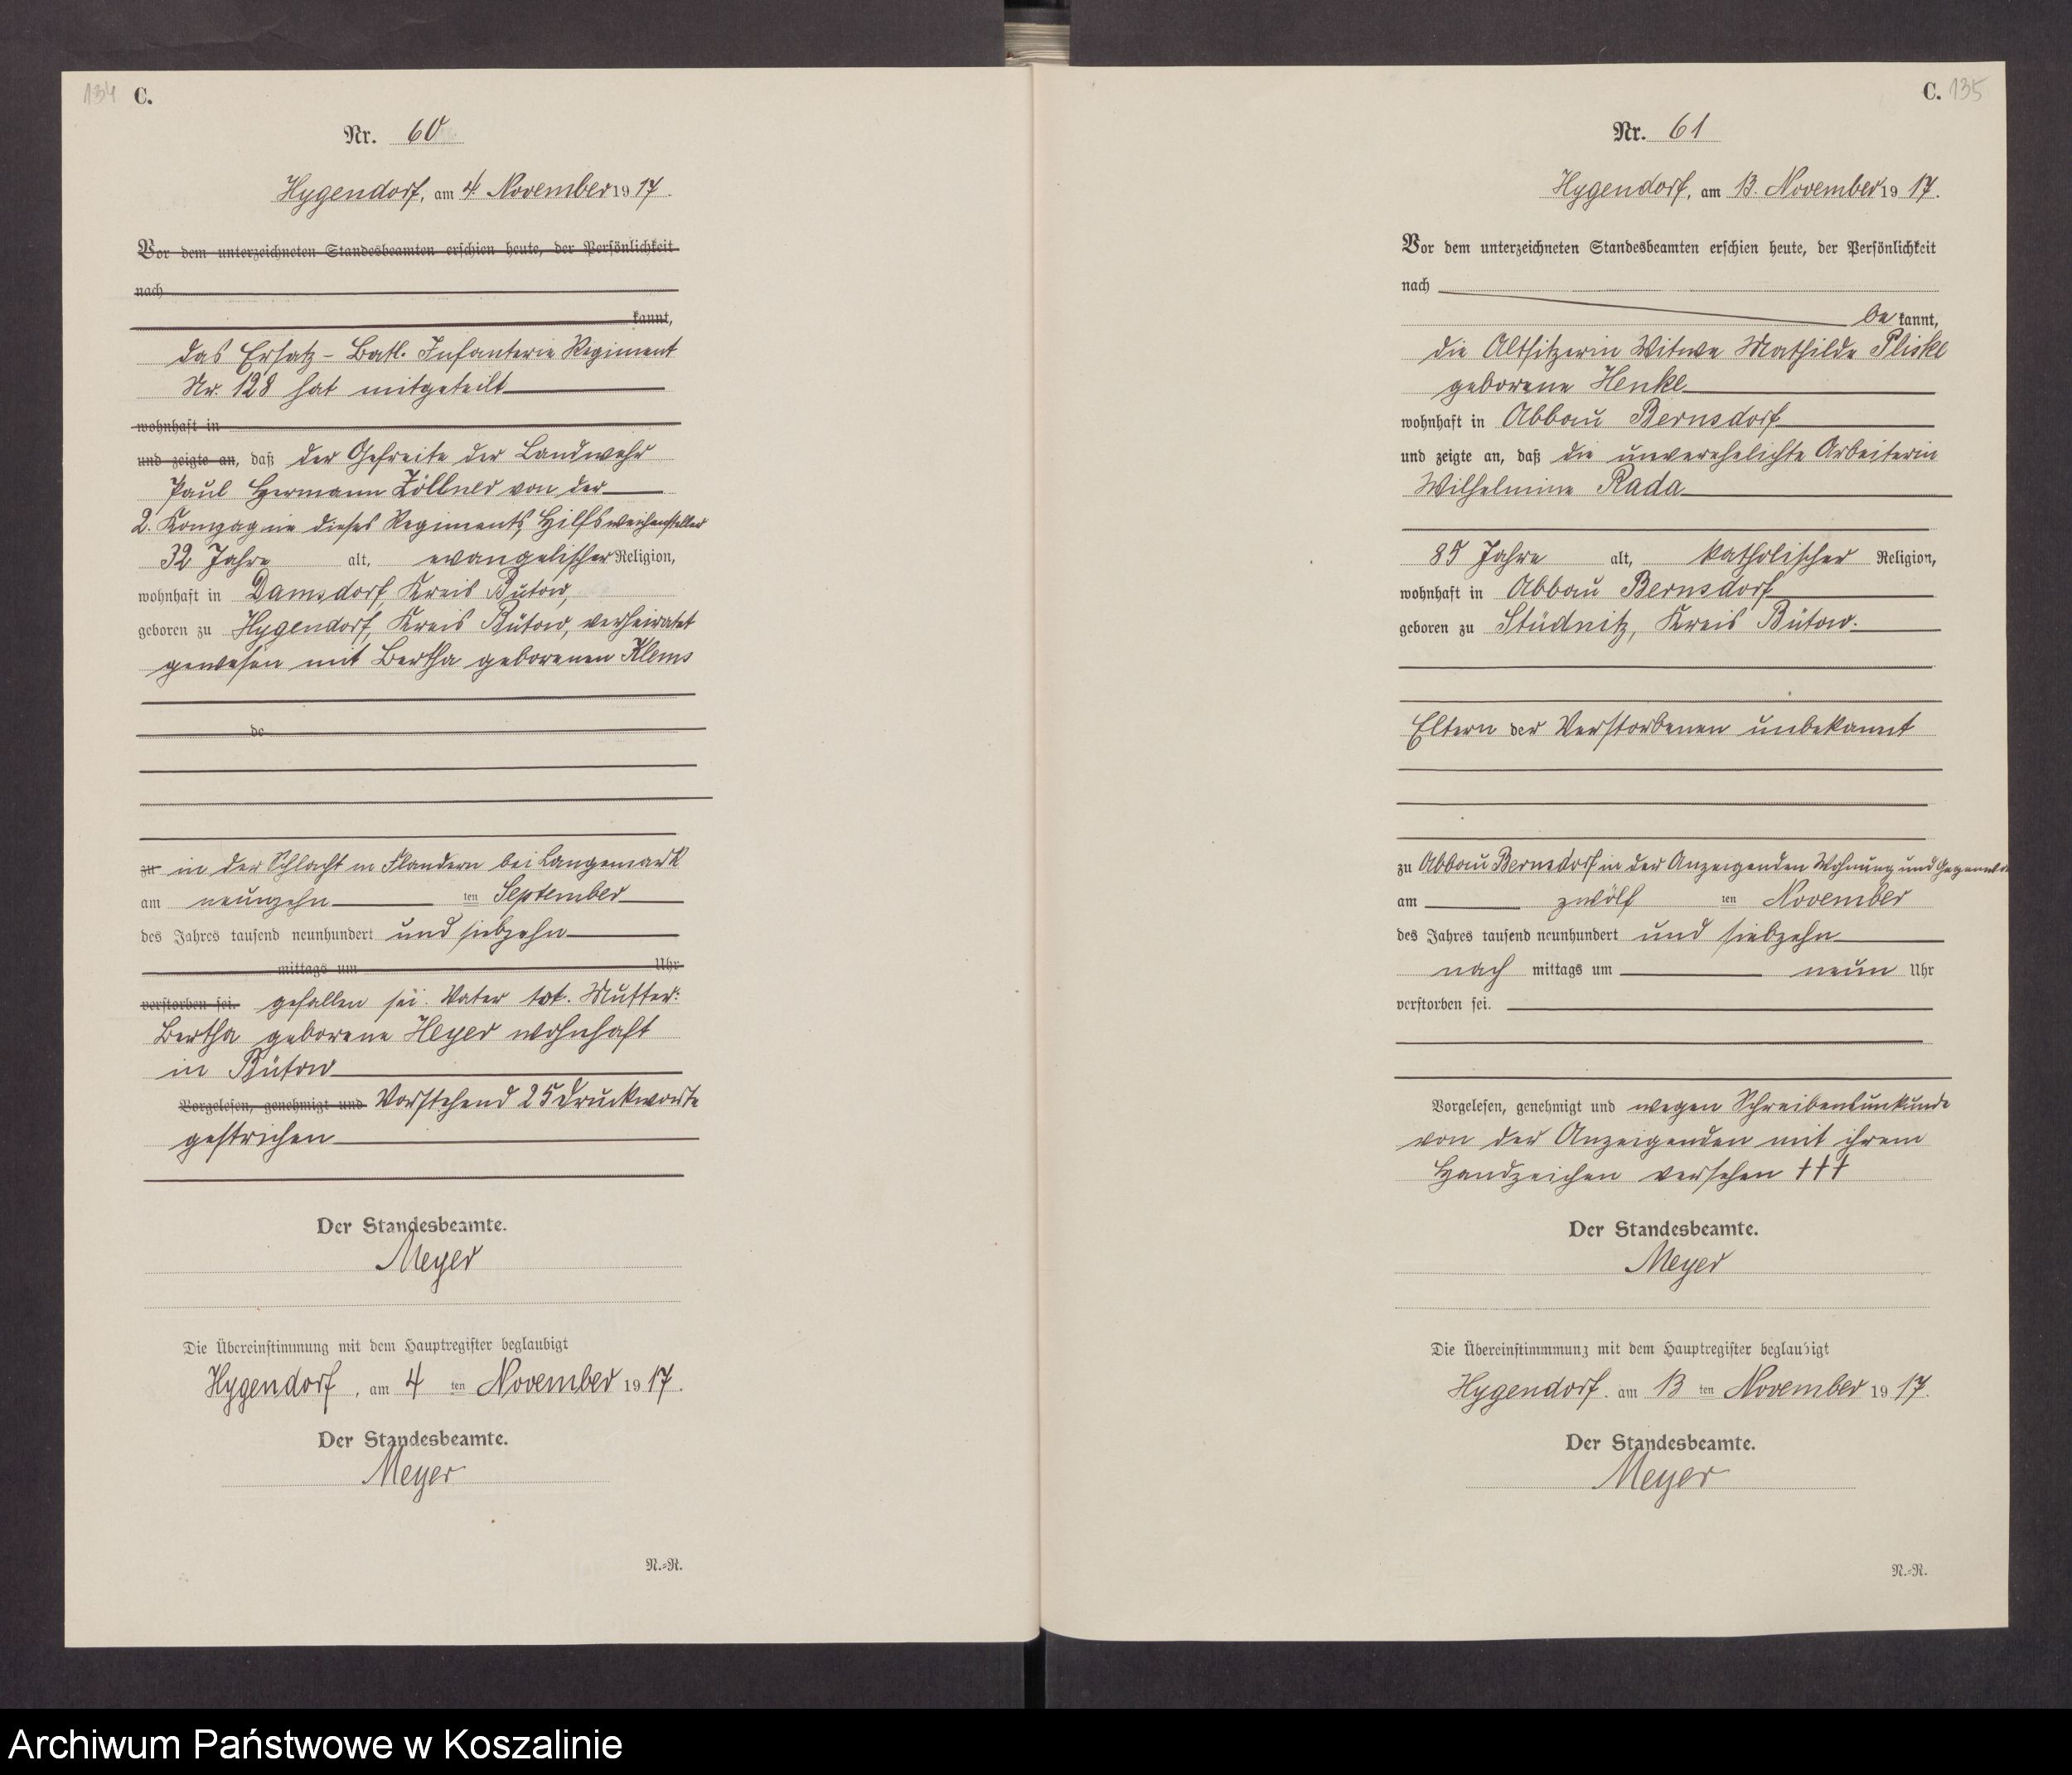 134 C.
Nr. 60
Hygendorf, am 4. November 1917.
Vor dem unterzeichneten Standesbeamten erschien heute, der Persönlichkeit
nach
kannt,
das Ersatz-Batl. Infanterie Regiment
Nr. 128 hat mitgeteilt
wohnhaft in
und zeigte an, daß der Gefreite der Landwehr
Paul Hermann Zöllner von der
2. Kompagnie dieses Regiments, Hilfsweichensteller
32 Jahre alt, evangelischer Religion,
wohnhaft in Damsdorf, Kreis Bütow,
geboren zu Hygendorf, Kreis Bütow, verheiratet
gewesen mit Bertha geborenen Klems
de
zu in der Schlacht in Flandern bei Langemark
am neunzehn ten September
des Jahres tausend neunhundert und siebzehn
mittags um Uhr
verstorben sei. gefallen sei. Vater tot. Mutter:
Bertha geborene Heyer wohnhaft
in Bütow
Vorgelesen, genehmigt und Vorstehend 25 Druckworte
gestrichen
Der Standesbeamte.
Meyer
Die Übereinstimmung mit dem Hauptregister beglaubigt
Hygendorf, am 4 ten November 1917.
Der Standesbeamte.
Meyer
N.-R.
C. 135
Nr. 61
Hygendorf, am 13. November 1917.
Vor dem unterzeichneten Standesbeamten erschien heute, der Persönlichkeit
nach
be kannt,
die Altsitzerin Witwe Mathilde Pliske
geborene Henke
wohnhaft in Abbau Bernsdorf
und zeigte an, daß die unverehelichte Arbeiterin
Wilhelmine Rada
85 Jahre alt, katholischer Religion,
wohnhaft in Abbau Bernsdorf
geboren zu Stüdnitz, Kreis Bütow.
Eltern der Verstorbenen unbekannt
zu Abbau Bernsdorf in der Anzeigenden Wohnung und
am zwölf ten November
des Jahres tausend neunhundert und siebzehn
nach mittags um neun Uhr
verstorben sei.
Vorgelesen, genehmigt und wegen Schreibensunkunde
von der Anzeigenden mit ihrem
Handzeichen versehen +++
Der Standesbeamte.
Meyer
Die Übereinstimmung mit dem Hauptregister beglaubigt
Hygendorf. am 13 ten November 1917.
Der Standesbeamte.
Meyer
N.-R.
Archiwum Państwowe w Koszalinie